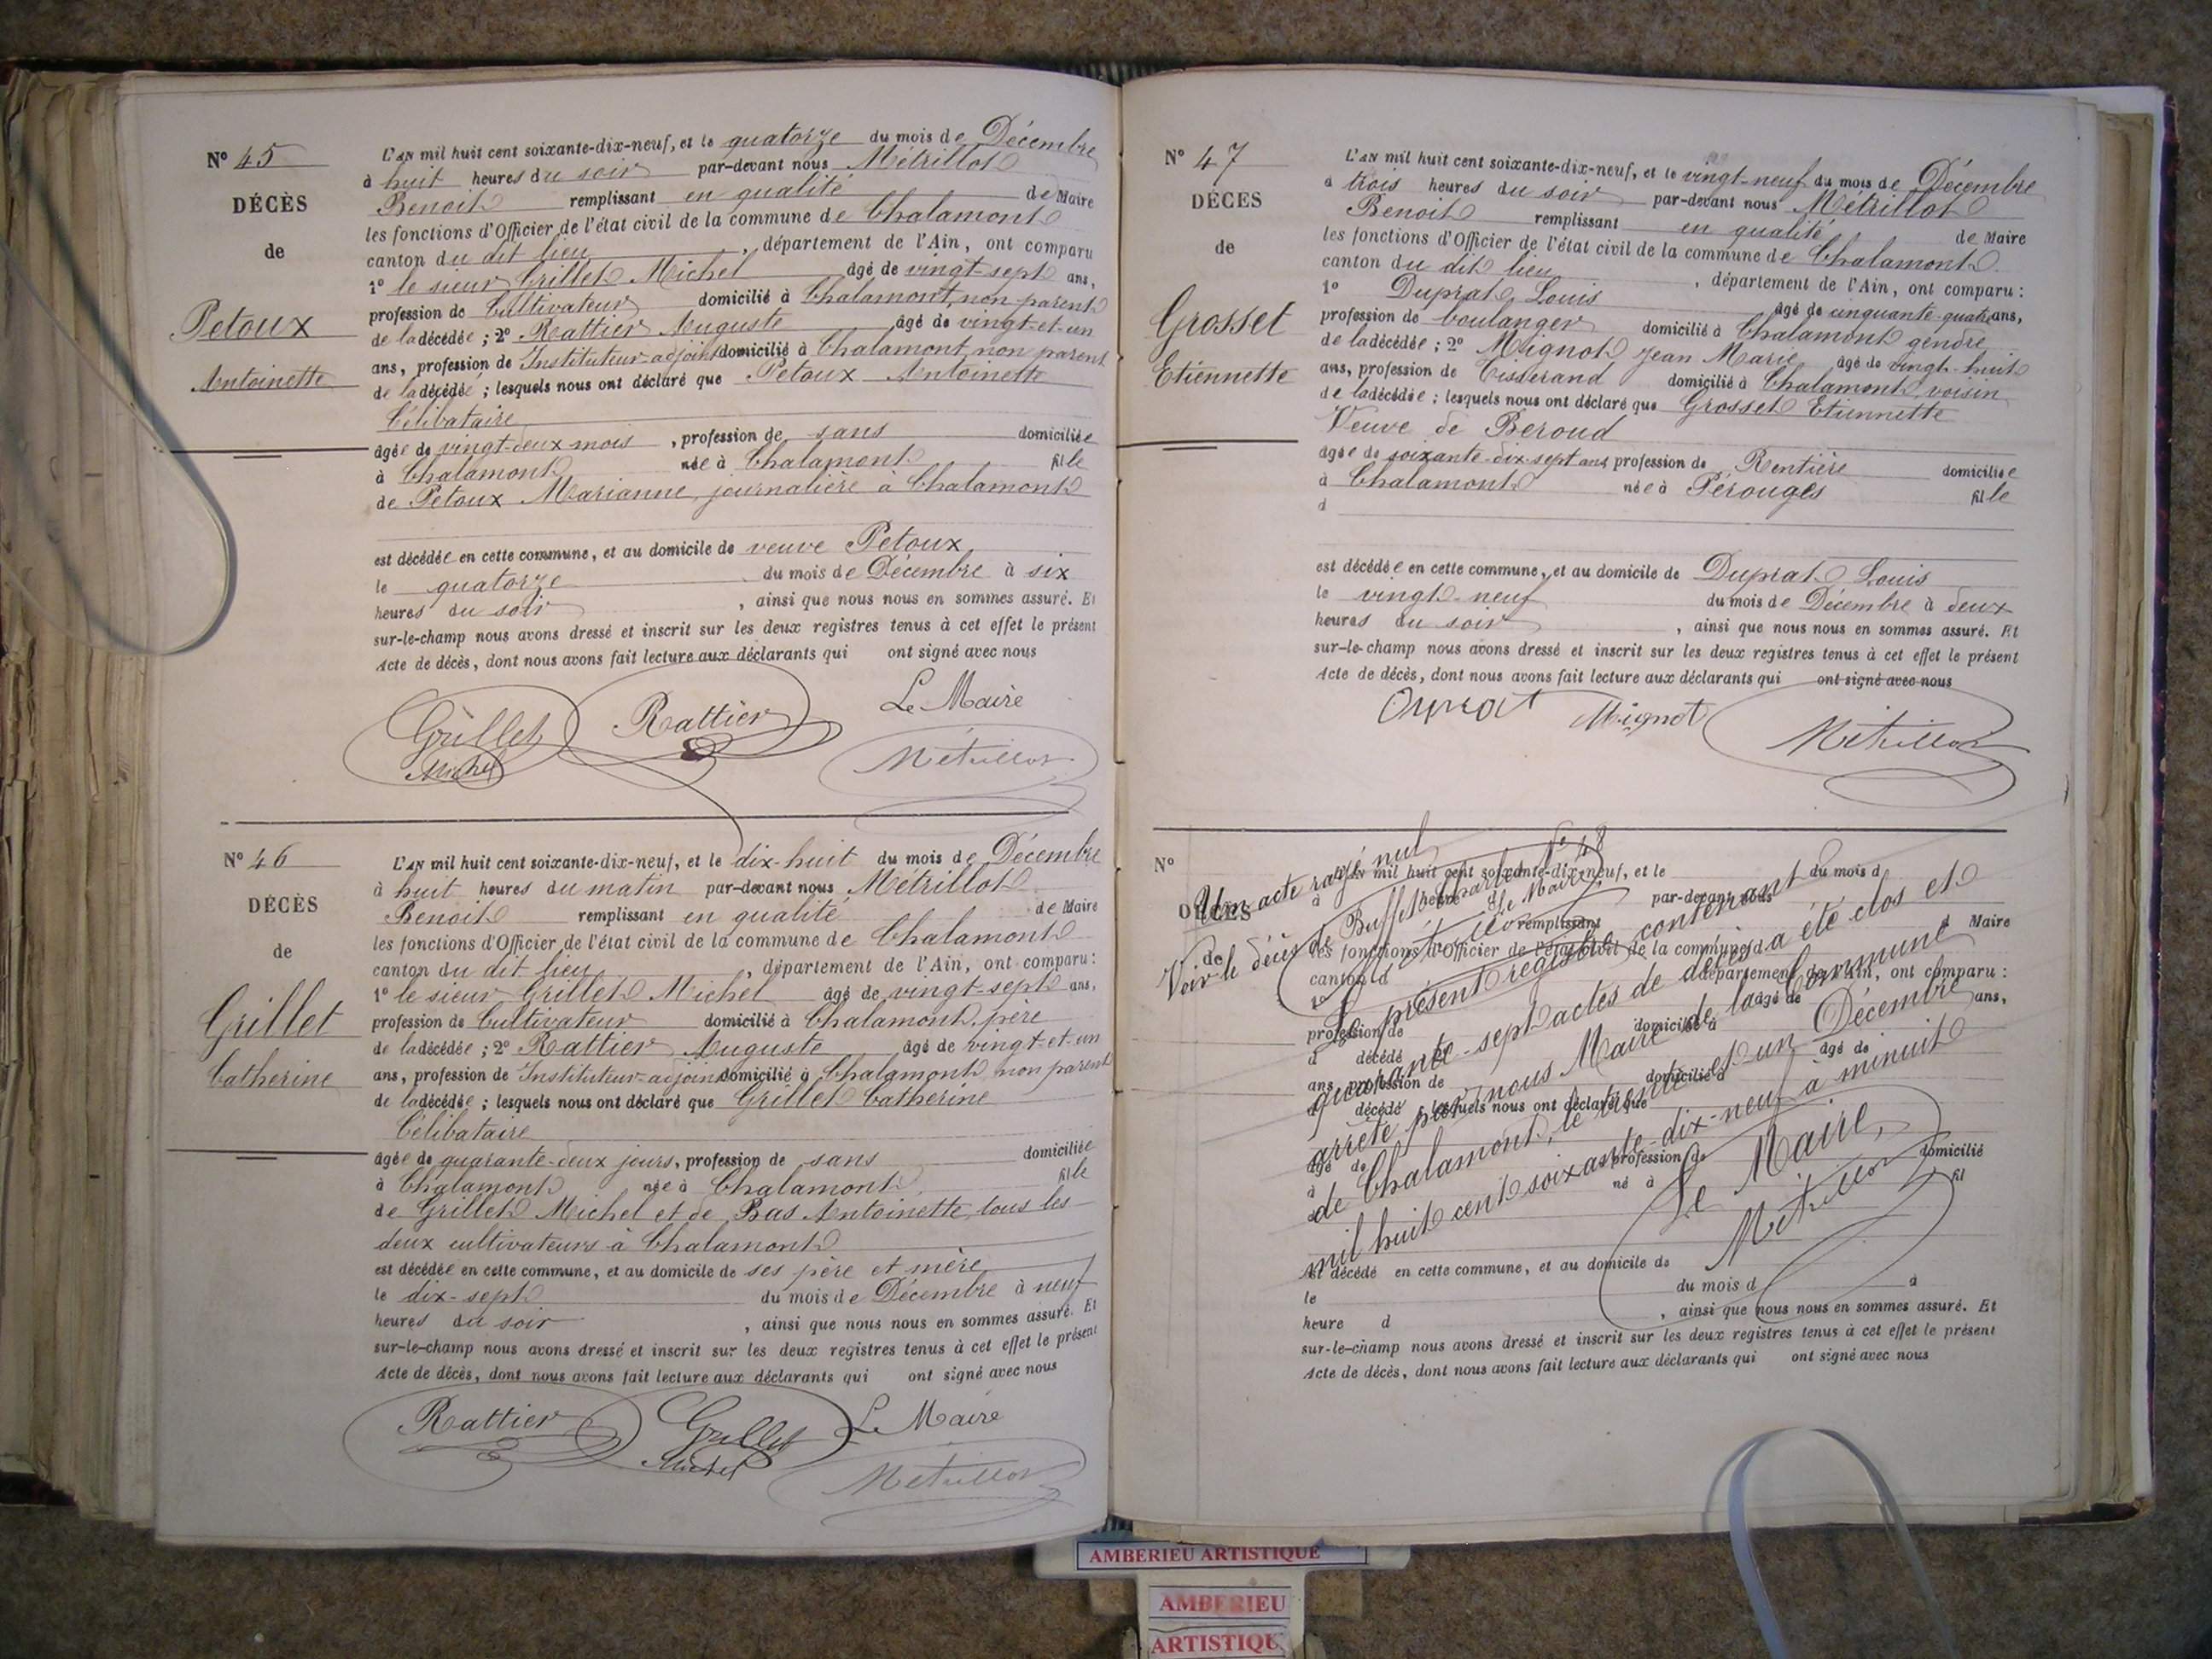 N° 45
DÉCÈS
de
Petoux
Antoinette
L'AN mil huit cent soixante-dix-neuf, et le quatorze du mois de Décembre
à huit heures du soir par-devant nous Métrillot
Benoit remplissant en qualité de Maire
les fonctions d'Officier de l'état civil de la commune de Chalamont
canton du dit lieu, département de l'Ain, ont comparu
1° le sieur Grillet Michel âgé de vingt-sept ans,
profession de Cultivateur domicilié à Chalamont, non parent
de la décédée ; 2° Rattier Auguste âgé de vingt-et-un
ans, profession de Instituteur-adjoint domicilié à Chalamont, non parent
de la décédée ; lesquels nous ont déclaré que Petoux Antoinette
Célibataire
âgée de vingt-deux mois, profession de sans domiciliée
à Chalamont née à Chalamont fille
de Petoux Marianne, journalière à Chalamont
est décédée en cette commune, et au domicile de veuve Petoux
le quatorze du mois de Décembre à six
heures du soir, ainsi que nous nous en sommes assuré. Et
sur-le-champ nous avons dressé et inscrit sur les deux registres tenus à cet effet le présent
Acte de décès, dont nous avons fait lecture aux déclarants qui ont signé avec nous
Grillet Rattier Le Maire
Michel Métrillot
N° 46
DÉCÈS
de
Grillet
Catherine
L'AN mil huit cent soixante-dix-neuf, et le dix-huit du mois de Décembre
à huit heures du matin par-devant nous Métrillot
Benoit remplissant en qualité de Maire
les fonctions d'Officier de l'état civil de la commune de Chalamont
canton du dit lieu, département de l'Ain, ont comparu :
1° le sieur Grillet Michel âgé de vingt-sept ans,
profession de Cultivateur domicilié à Chalamont, père
de la décédée ; 2° Rattier Auguste âgé de vingt-et-un
ans, profession de Instituteur-adjoint domicilié à Chalamont, non parent
de la décédée ; lesquels nous ont déclaré que Grillet Catherine
Célibataire
âgée de quarante-deux jours, profession de sans domiciliée
à Chalamont née à Chalamont fille
de Grillet Michel et de Bas Antoinette, tous les
deux cultivateurs à Chalamont
est décédée en cette commune, et au domicile de ses père et mère
le dix-sept du mois de Décembre à neuf
heures du soir, ainsi que nous nous en sommes assuré. Et
sur-le-champ nous avons dressé et inscrit sur les deux registres tenus à cet effet le présent
Acte de décès, dont nous avons fait lecture aux déclarants qui ont signé avec nous
Rattier Grillet Le Maire
Michel Métrillot
N° 47
DÉCÈS
de
Grosset
Etiennette
L'AN mil huit cent soixante-dix-neuf, et le vingt-neuf du mois de Décembre
à trois heures du soir par-devant nous Métrillot
Benoit remplissant en qualité de Maire
les fonctions d'Officier de l'état civil de la commune de Chalamont
canton du dit lieu, département de l'Ain, ont comparu :
1° Duprat Louis âgé de cinquante-quatre ans,
profession de boulanger domicilié à Chalamont gendre
de la décédée ; 2° Mignot Jean Marie âgé de vingt-huit
ans, profession de Tisserand domicilié à Chalamont, voisin
de la décédée ; lesquels nous ont déclaré que Grosset Etiennette
Veuve de Beroud
âgée de soixante-dix-sept ans profession de Rentière domiciliée
à Chalamont née à Pérouges fille
d
est décédée en cette commune, et au domicile de Duprat Louis
le vingt-neuf du mois de Décembre à deux
heures du soir, ainsi que nous nous en sommes assuré. Et
sur-le-champ nous avons dressé et inscrit sur les deux registres tenus à cet effet le présent
Acte de décès, dont nous avons fait lecture aux déclarants qui ont signé avec nous
Duprat Mignot Métrillot
N°
DÉCÈS
de
Un acte rayé nul
Voir le décès de Buffet N° 48
Le Maire
Métrillot
L'AN mil huit cent soixante-dix-neuf, et le du mois d
à heure par-devant nous
remplissant d Maire
les fonctions d'Officier de l'état civil de la commune d
canton d département de l'Ain, ont comparu :
1° âgé de ans,
profession de domicilié à
d décédé ; 2° âgé de
ans, profession de domicilié à
d décédé ; lesquels nous ont déclaré que
âgé de profession de domicilié
à né à fil
d
Le présent registre contenant
quarante-sept actes de décès a été clos et
arrêté par nous Maire de la Commune
de Chalamont, le trente-et-un Décembre
mil huit cent soixante-dix-neuf à minuit
Le Maire,
Métrillot
est décédé en cette commune, et au domicile de
le du mois d à
heure d, ainsi que nous nous en sommes assuré. Et
sur-le-champ nous avons dressé et inscrit sur les deux registres tenus à cet effet le présent
Acte de décès, dont nous avons fait lecture aux déclarants qui ont signé avec nous
AMBERIEU ARTISTIQUE
AMBERIEU
ARTISTIQU